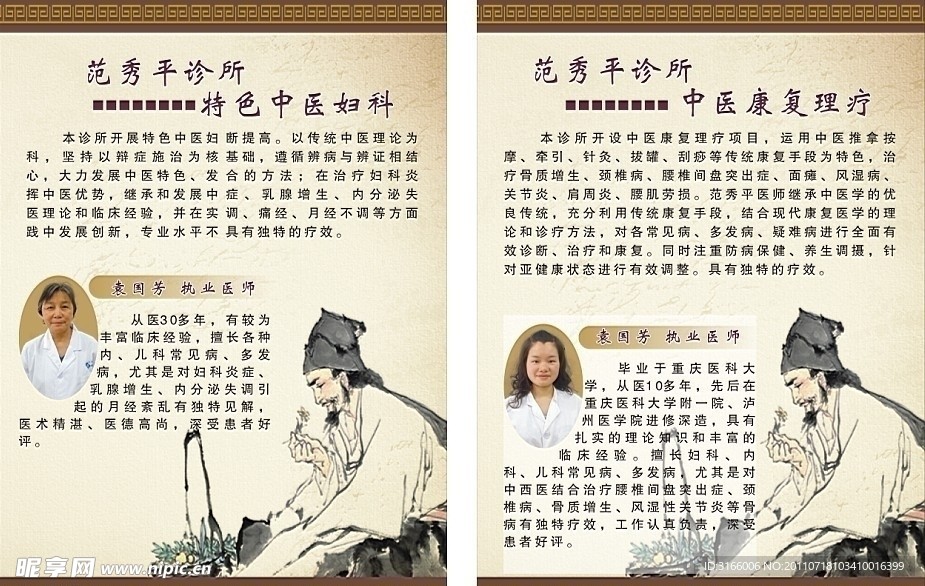 范秀平诊所
特色中医妇科
本诊所开展特色中医妇 断提高。以传统中医理论为
科，坚持以辩症施治为核 基础，遵循辨病与辨证相结
心，大力发展中医特色、发 合的方法；在治疗妇科炎
挥中医优势，继承和发展中 症、乳腺增生、内分泌失
医理论和临床经验，并在实 调、痛经、月经不调等方面
践中发展创新，专业水平不 具有独特的疗效。
袁国芳 执业医师
从医30多年，有较为
丰富临床经验，擅长各种
内、儿科常见病、多发
病，尤其是对妇科炎症、
乳腺增生、内分泌失调引
起的月经紊乱有独特见解，
医术精湛、医德高尚，深受患者好
评。
范秀平诊所
中医康复理疗
本诊所开设中医康复理疗项目，运用中医推拿按
摩、牵引、针灸、拔罐、刮痧等传统康复手段为特色，治
疗骨质增生、颈椎病、腰椎间盘突出症、面瘫、风湿病、
关节炎、肩周炎、腰肌劳损。范秀平医师继承中医学的优
良传统，充分利用传统康复手段，结合现代康复医学的理
论和诊疗方法，对各常见病、多发病、疑难病进行全面有
效诊断、治疗和康复。同时注重防病保健、养生调摄，针
对亚健康状态进行有效调整。具有独特的疗效。
袁国芳 执业医师
毕业于重庆医科大
学，从医10多年，先后在
重庆医科大学附一院、泸
州医学院进修深造，具有
扎实的理论知识和丰富的
临床经验。擅长妇科、内
科、儿科常见病、多发病，尤其是对
中西医结合治疗腰椎间盘突出症、颈
椎病、骨质增生、风湿性关节炎等骨
病有独特疗效，工作认真负责，深受
患者好评。
昵享网 www.nipic.cn
ID:3166006 NO:20110718103410016399